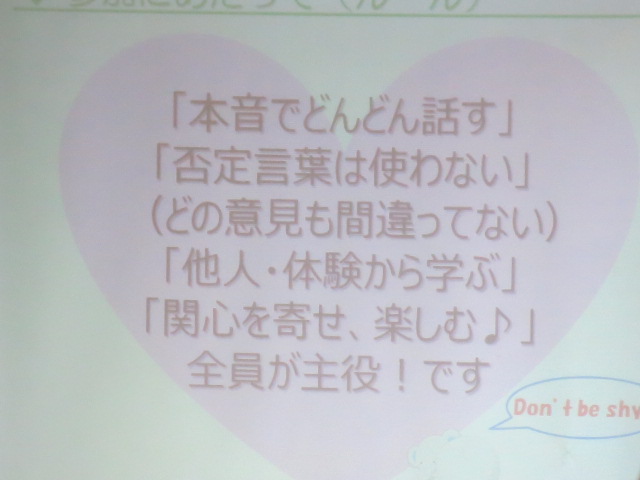 参加にあたって
「本音でどんどん話す」
「否定言葉は使わない」
(どの意見も間違ってない)
「他人・体験から学ぶ」
「関心を寄せ、楽しむ♪」
全員が主役！です
Don't be shy